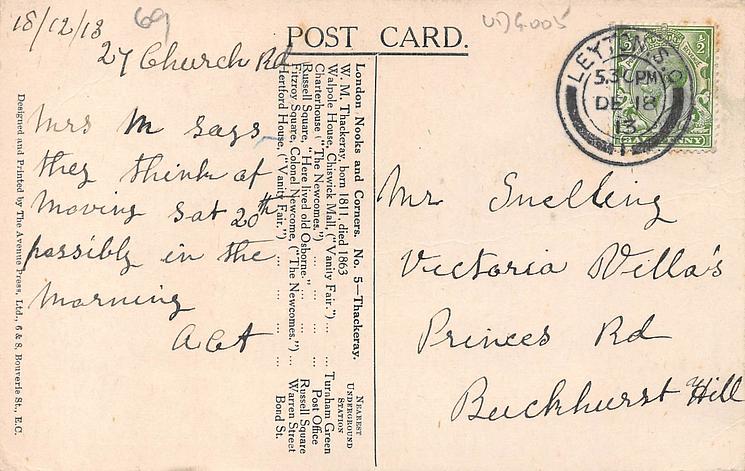 18/12/13
69
UDG005
POST CARD.
27 Church Rd
Mrs M says
they think of
moving Sat 20th
possibly in the
morning
London Nooks and Corners. No. 5—Thackeray.
W. M. Thackeray, born 1811, died 1863
NEAREST UNDERGROUND STATION
Walpole House, Chiswick Mall, ("Vanity Fair.") ... ... Turnham Green
Charterhouse ("The Newcomes,") ... ... ... Post Office
Russell Square, "Here lived old Osborne." ... ... Russell Square
Fitzroy Square, Colonel Newcome, ("The Newcomes.") ... Warren Street
Hertford House, ("Vanity Fair.") ... ... ... ... Bond St.
Designed and Printed by The Avenue Press, Ltd., 6 & 8, Bouverie St., E.C.
LEYTONS
5.30PM
DE 18
13
Mr Snelling
Victoria Villa's
Princes Rd
Buckhurst Hill